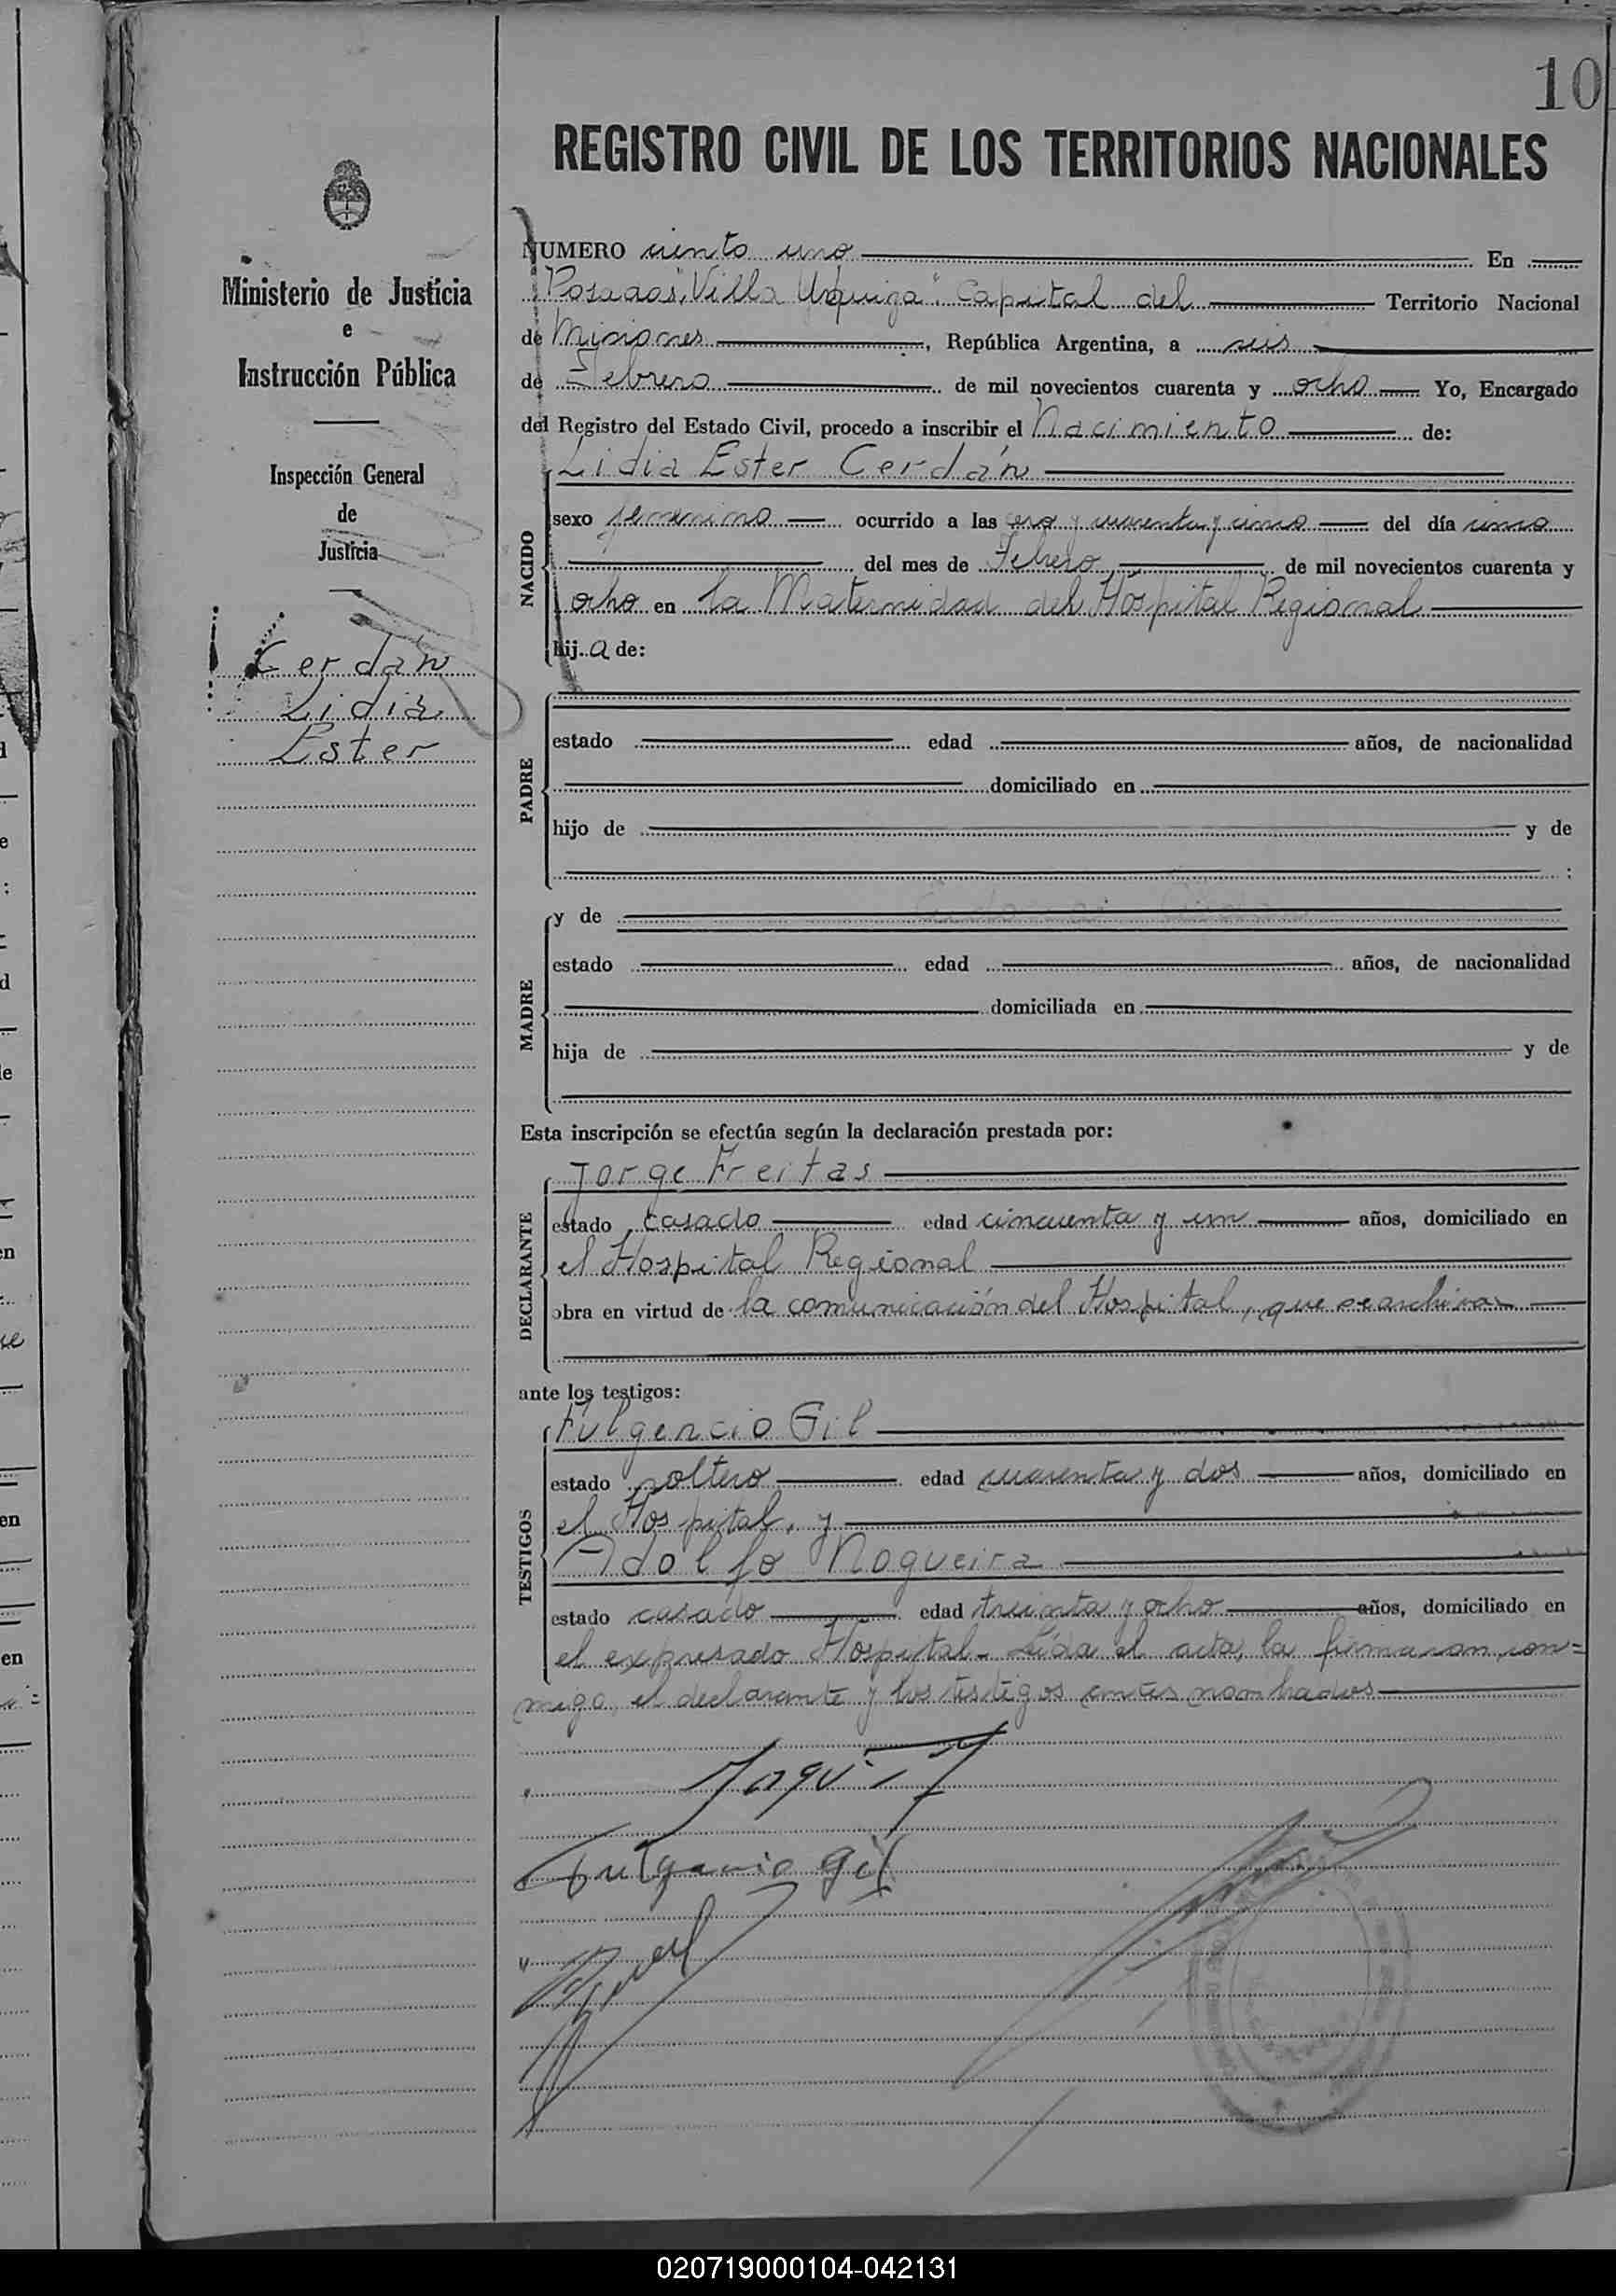 10
REGISTRO CIVIL DE LOS TERRITORIOS NACIONALES
Ministerio de Justicia
e
Instrucción Pública
Inspección General
de
Justicia
Cerdán
Lidia
Ester
NUMERO ciento uno En
Posadas "Villa Urquiza" Capital del Territorio Nacional
de Misiones, República Argentina, a seis
de Febrero de mil novecientos cuarenta y ocho Yo, Encargado
del Registro del Estado Civil, procedo a inscribir el Nacimiento de:
Lidia Ester Cerdán
NACIDO
sexo femenino ocurrido a las cero y cuarenta y cinco del día cinco
del mes de Febrero de mil novecientos cuarenta y
ocho en la Maternidad del Hospital Regional
hija de:
PADRE
estado edad años, de nacionalidad
domiciliado en
hijo de y de
:
MADRE
y de
estado edad años, de nacionalidad
domiciliada en
hija de y de
Esta inscripción se efectúa según la declaración prestada por:
DECLARANTE
Jorge Freitas
estado casado edad cincuenta y un años, domiciliado en
el Hospital Regional
obra en virtud de la comunicación del Hospital, que se archiva
ante los testigos:
TESTIGOS
Fulgencio Gil
estado soltero edad cuarenta y dos años, domiciliado en
el Hospital, y
Adolfo Nogueira
estado casado edad treinta y ocho años, domiciliado en
el expresado Hospital. Leída el acta, la firmaron con=
migo, el declarante y los testigos antes nombrados
Fulgencio Gil
020719000104-042131